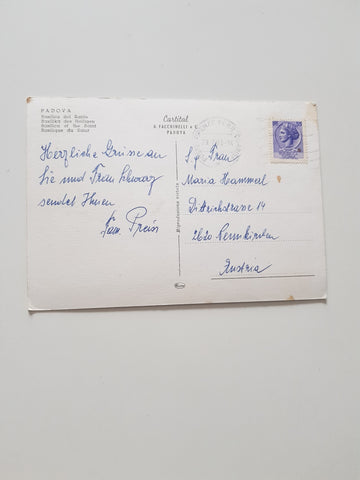 PADOVA
Basilica del Santo
Basilika des Heiligen
Basilica of the Saint
Basilique du Saint
Cartital
G. FACCHINELLI & C.
PADOVA
Riproduzione vietata
Herzliche Grüsse an
Sie und Frau Schwarz
sendet Ihnen
Fam. Preis
S. g. Frau
Maria Hammal
Dittrichstrasse 14
2620 Neunkirchen
Austria